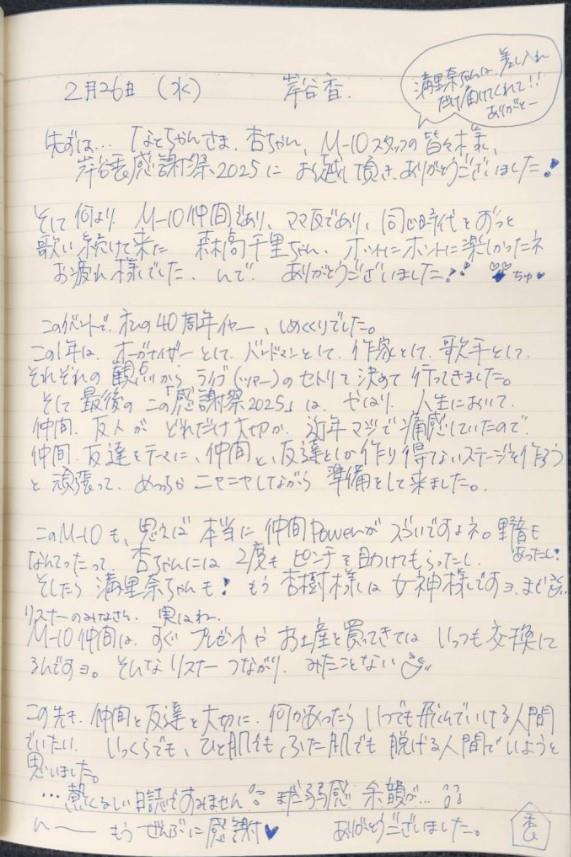 2月26日 (水) 岸谷香.
満里奈ちゃんは、差し入れ
だけ届けてくれて!!
ありがとー
先ずは… なとちゃんさま、杏ちゃん、M-10スタッフの皆々様、
岸谷香感謝祭2025に お越し頂き、ありがとうございました!
そして何より M-10仲間であり、ママ友であり、同じ時代をずっと
歌い続けて来た 森高千里ちゃん、ホントにホントに楽しかったネ
お疲れ様でした、んで ありがとうございました!! ちゅ
このイベントで、私の40周年イヤー、しめくくりでした。
この1年は、オーガナイザーとして、バンドマンとして、作家として、歌手として、
それぞれの観点からライブ(ツアー)のセトリを決めて行ってきました。
そして最後のこの「感謝祭2025」は、やはり、人生において、
仲間、友人が どれだけ大切か、近年マジで痛感していたので
仲間、友達をテーマに、仲間と、友達としか作り得ないステージを作ろう
と頑張って、めっちゃニヤニヤしながら 準備をして来ました。
このM-10も、思えば 本当に 仲間Powerが スゴいですよネ。野音も
あったし!
なんてったって、杏ちゃんには 2度も ピンチを助けてもらったし、
そしたら 満里奈ちゃんも! もう 杏樹様は 女神様ですヨ、まじ
リスナーのみなさん、実はね、
M-10仲間は、すぐ プレゼントや お土産を買ってきては いつも交換して
るんですヨ。そんなリスナーつながり、みたことない
この先も、仲間と友達を大切に、何かあったら いつでも飛んでいける人間
でいたい、いくらでも、ひと肌でも、ふた肌でも 脱げる人間でいようと
思いました。
…熱くるしい日誌ですみません まだ 感 余韻が…
ん〜 もう ぜんぶに感謝 ありがとうございました。
香